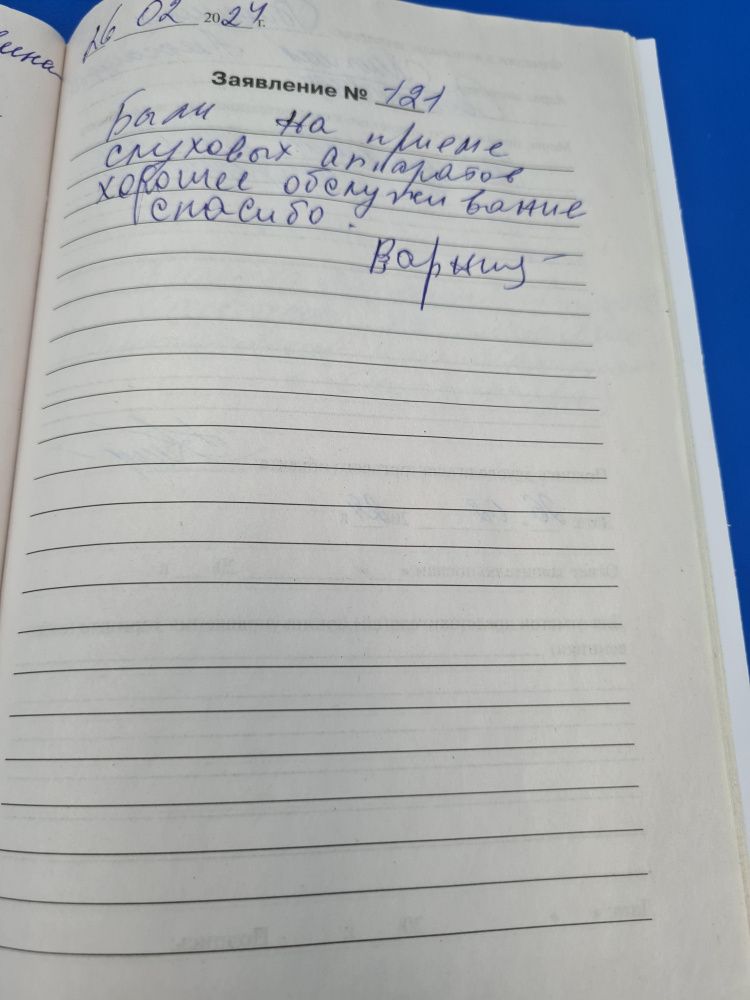 26 02 2024 г.
Заявление № 121
Были на приеме
слуховых аппаратов
хорошее обслуживание
спасибо.